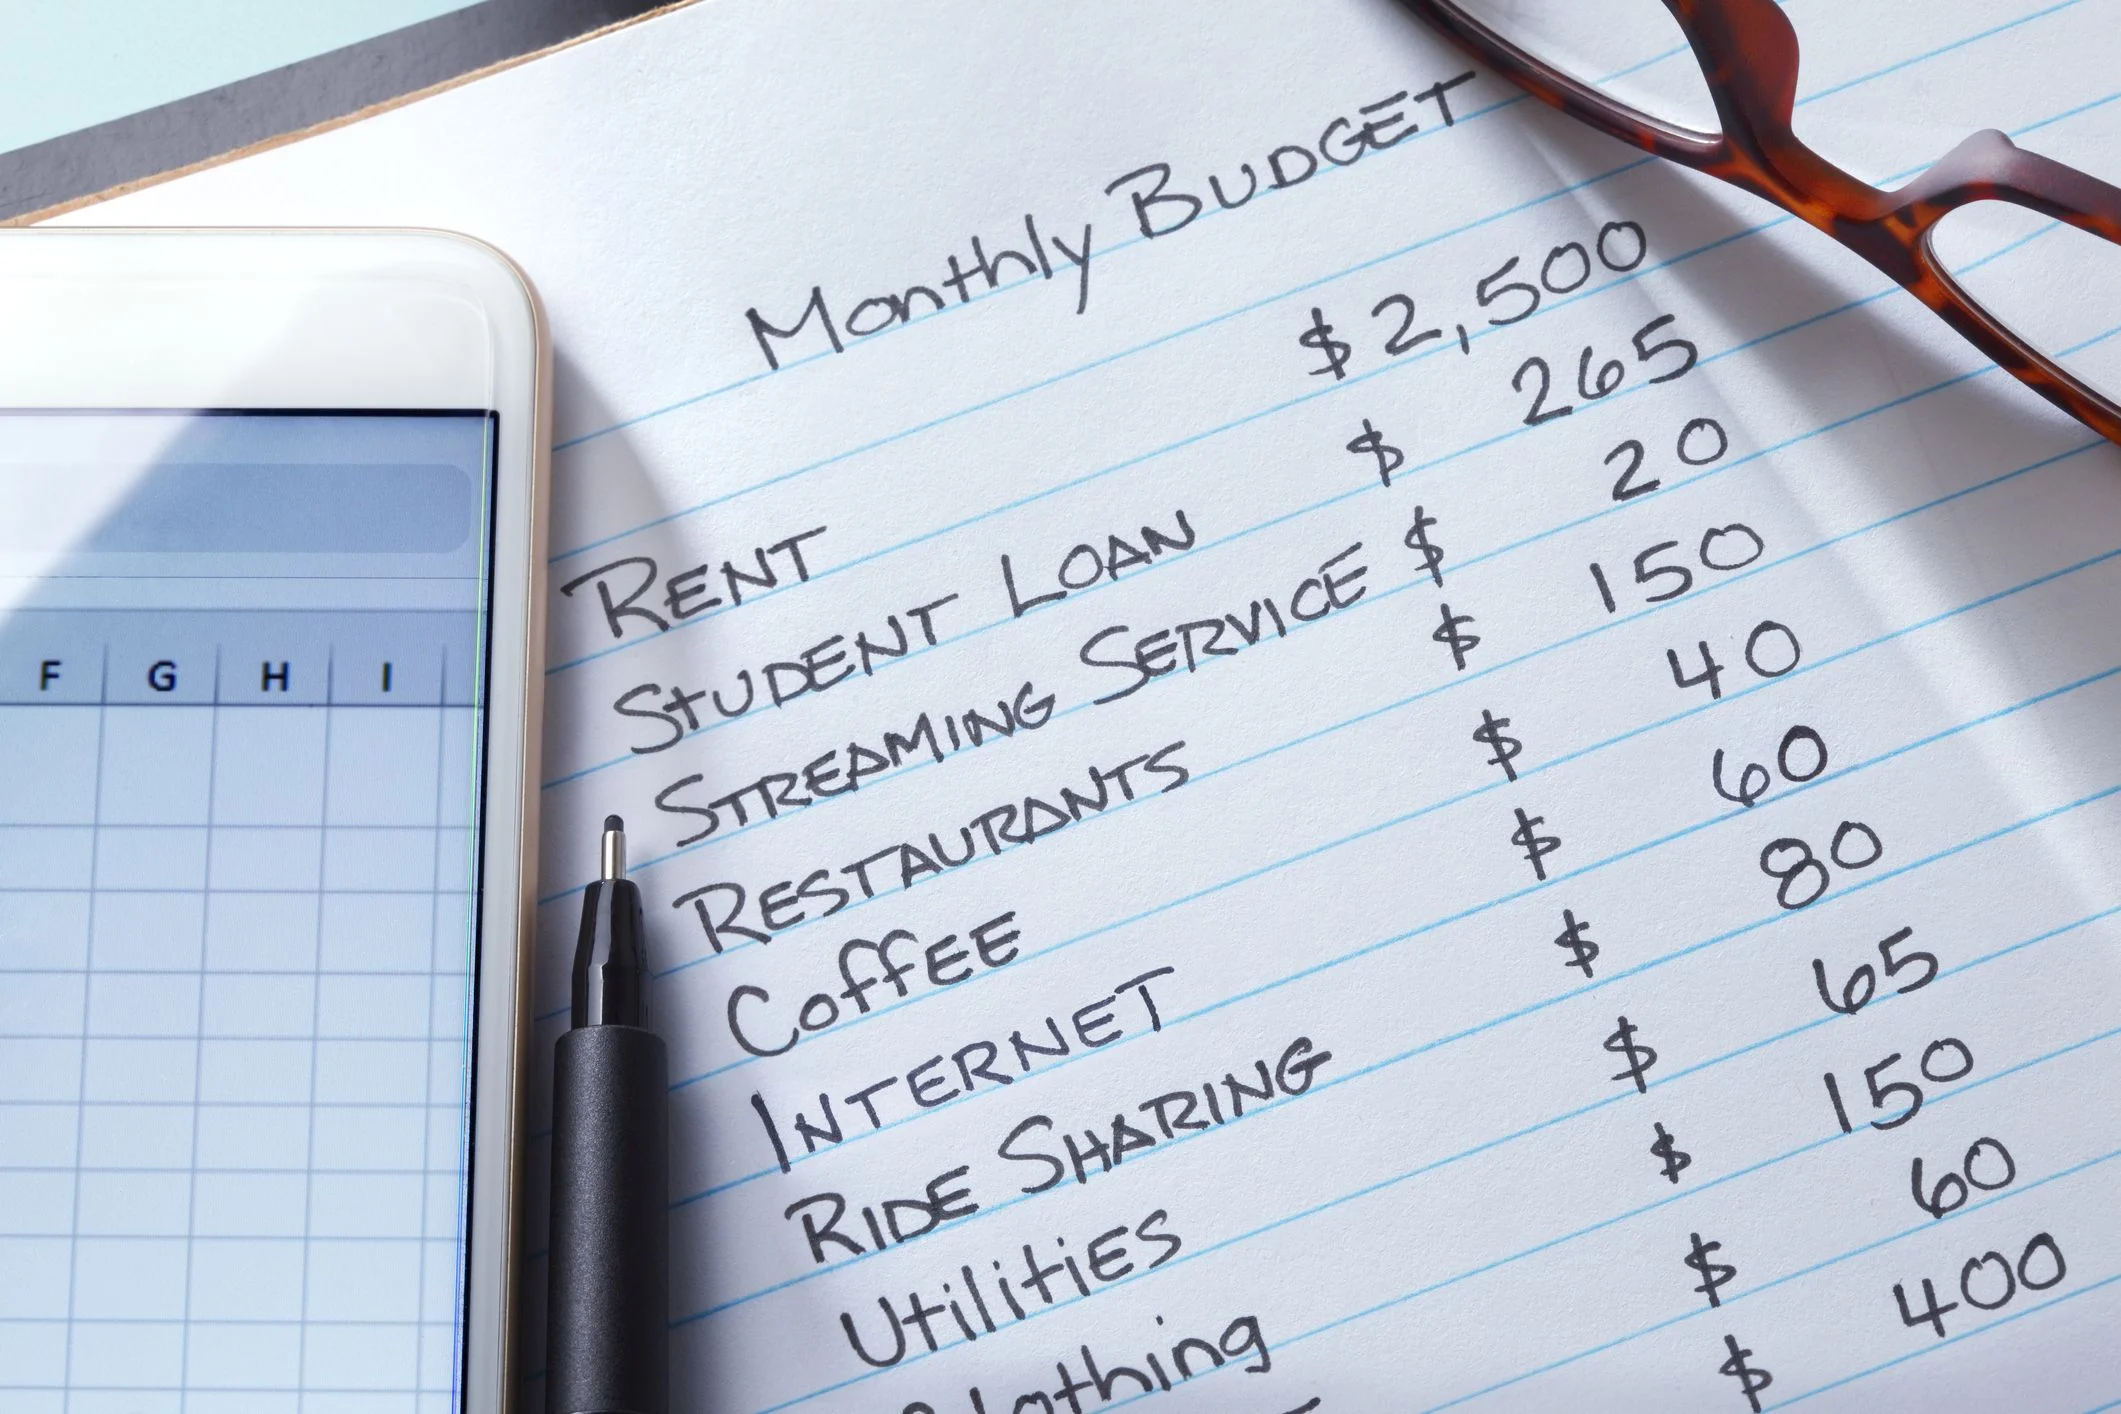 Monthly BUDGET
RENT $ 2,500
STUDENT LOAN $ 265
STREAMING SERVICE $ 20
RESTAURANTS $ 150
COFFEE $ 40
INTERNET $ 60
RIDE SHARING $ 80
UtilitiES $ 65
Clothing $ 150
$ 60
$ 400
F G H I